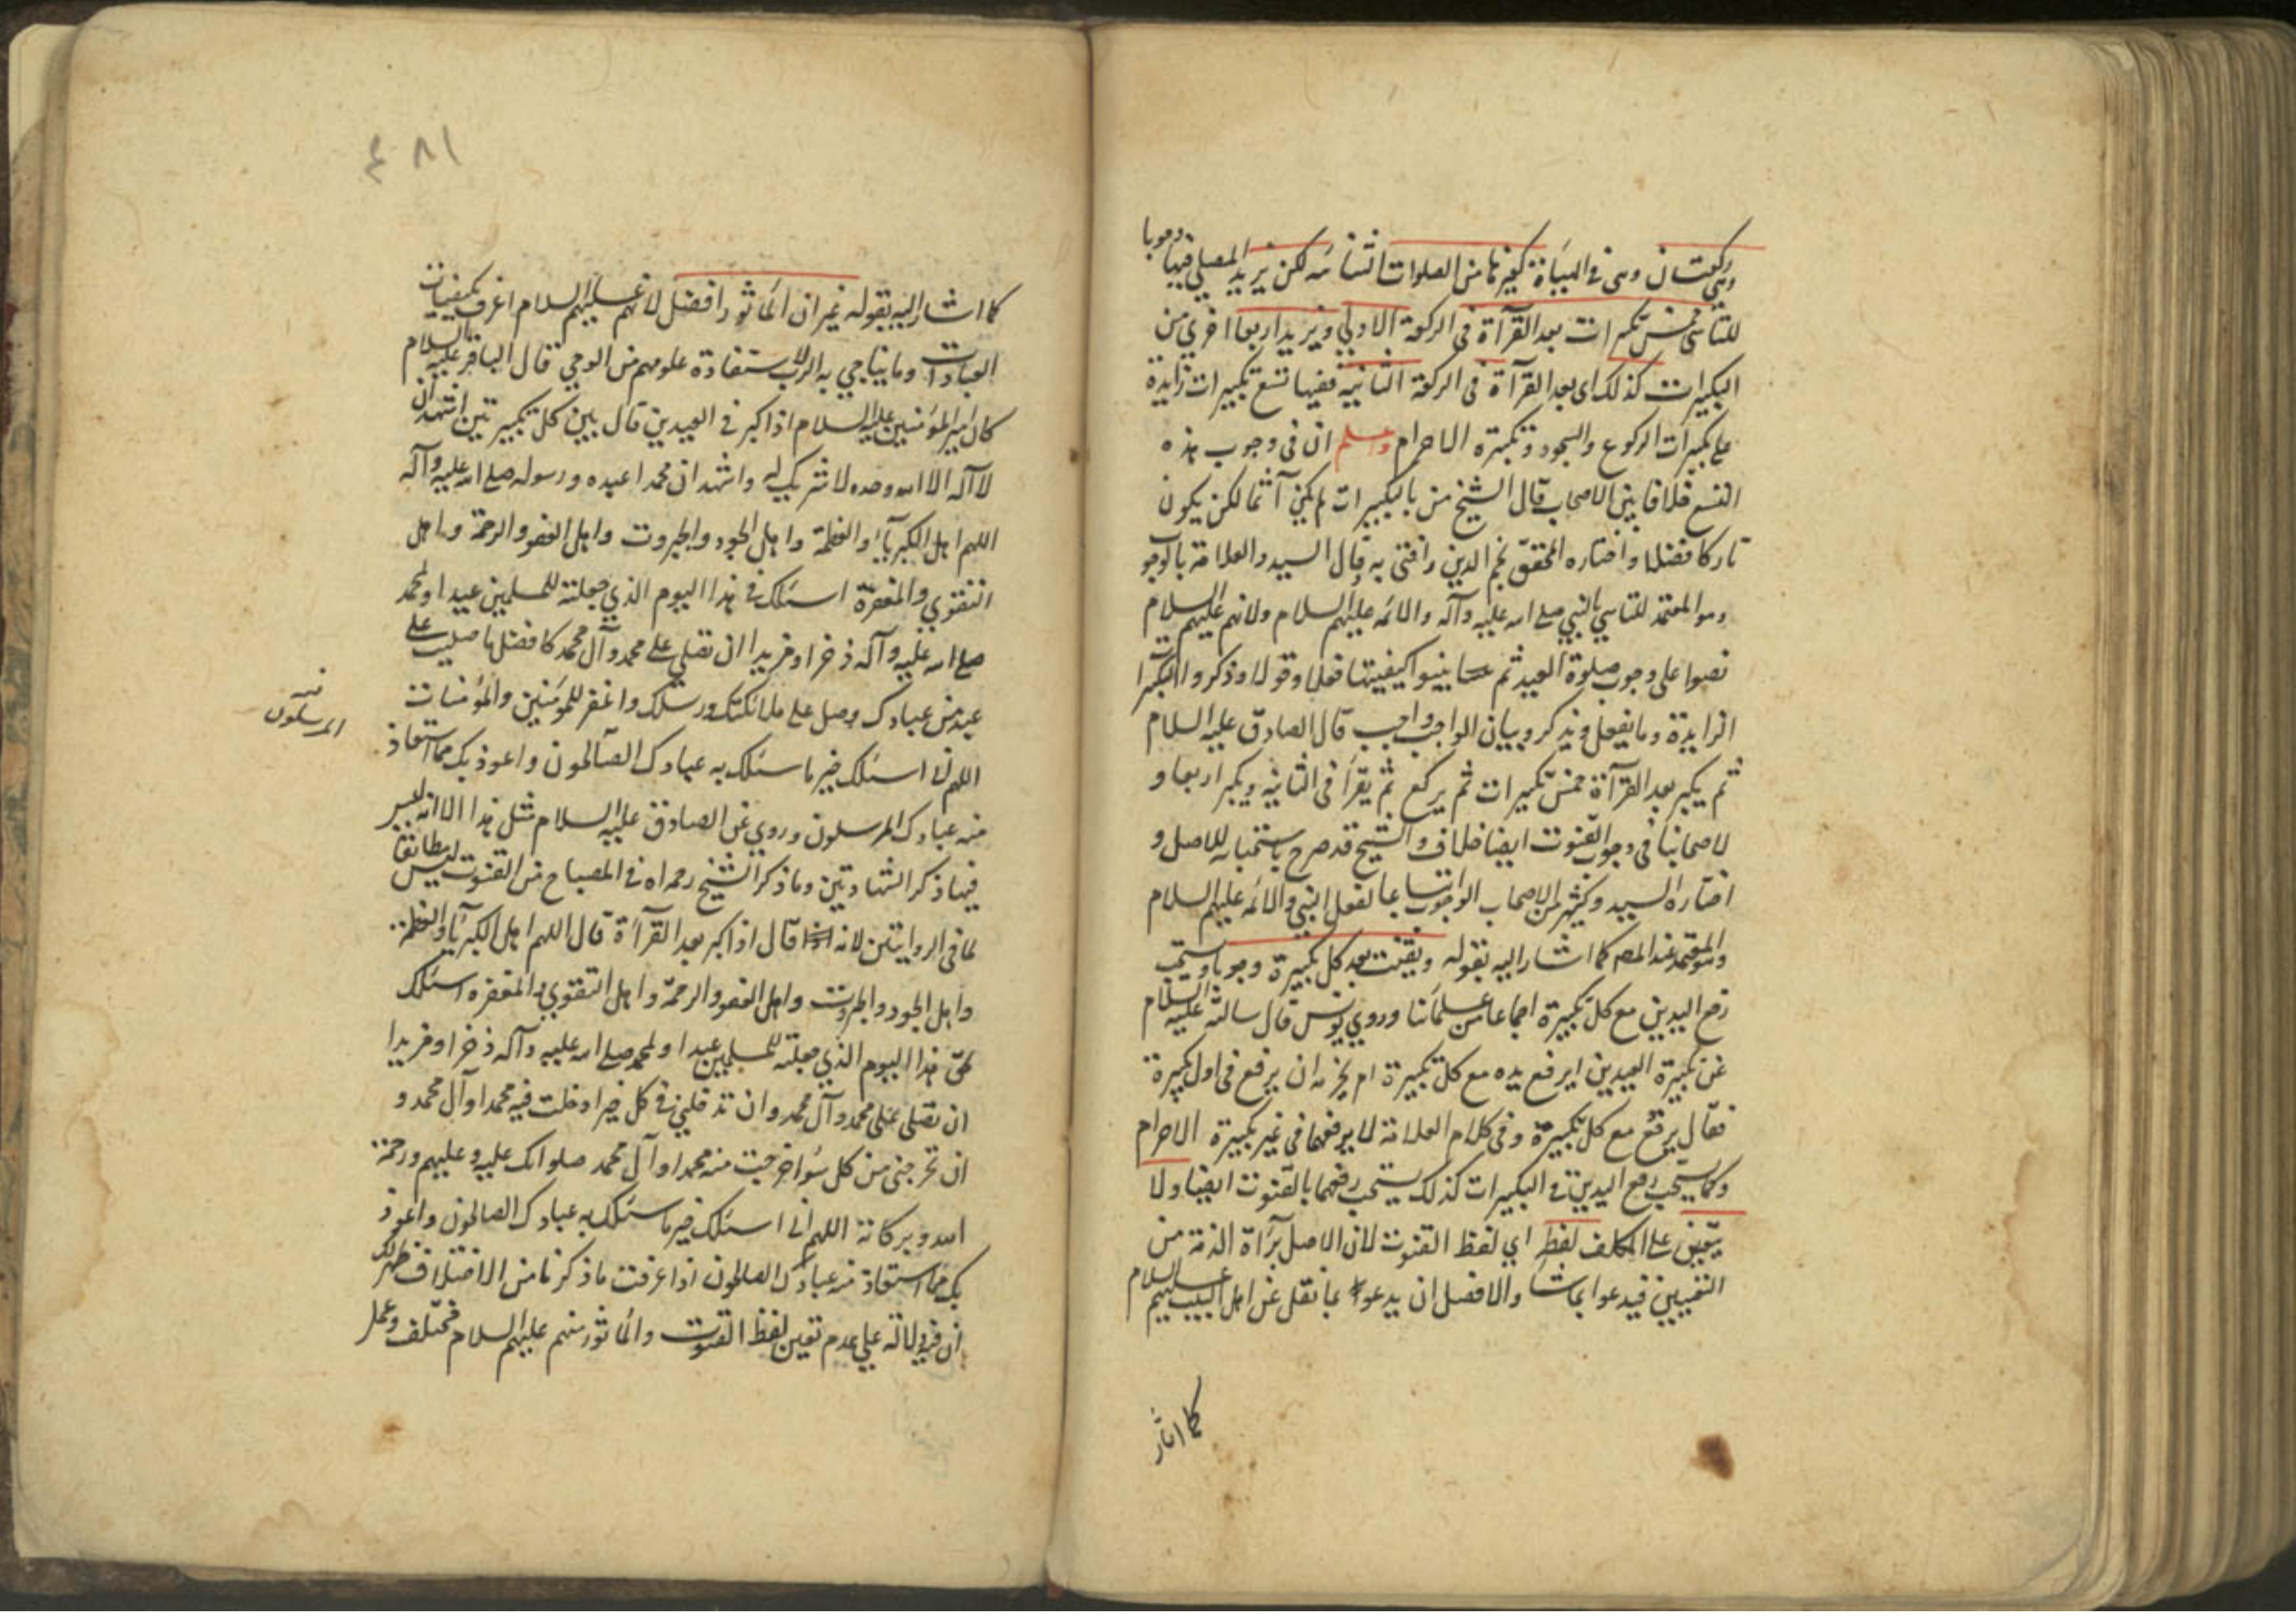 وهي ركعتان وهى فى الهيأة كغيرها من الصلوات الثنائيه لكن يزيد المصلي فيها وجوبا
للتأسى خمس تكبيرات بعد القرآءة فى الركعة الاولي ويزيد اربعا اخري من
التكبيرات كذلك اى بعد القرآءة فى الركعة الثانيه ففيها تسع تكبيرات زايدة
على تكبيرات الركوع والسجود وتكبيرة الاحرام واعلم ان فى وجوب هذه
التسع خلافا بين الاصحاب قال الشيخ من بالتكبيرات لم يكن آثما لكن يكون
تاركا فضلا واختاره المحقق نجم الدين وافتى به قال السيد والعلامة بالوجوب
وهو المعتمد للتاسي بالنبي صلى الله عليه وآله والائمه عليهم السلام ولانهم عليهم السلام
نصوا على وجوب صلوة العيد ثم بينوا كيفيتها فعلا وقولا وذكروا التكبيرات
الزايدة وما يفعل ويذكر وبيان الواجب واجب قال الصادق عليه السلام
ثم يكبر بعد القرآءة خمس تكبيرات ثم يركع ثم يقرأ فى الثانيه ويكبر اربعا و
لاصحابنا فى وجوب القنوت ايضا خلاف والشيخ قد صرح باستحبابه للاصل و
اختاره السيد وكثير من الاصحاب الوجوب اتباعا لفعل النبي والائمه عليهم السلام
وهو المعتمد عند المص كما اشار اليه بقوله ويقنت بعد كل تكبيرة وجوبا ويستحب
رفع اليدين مع كل تكبيرة اجماعا من علمائنا وروي يونس قال سالته عليه السلام
عن تكبيرة العيدين ايرفع يده مع كل تكبيرة ام يجزيه ان يرفع فى اول تكبيرة
فقال يرفع مع كل تكبيرة وفى كلام العلامة لا يرفعهما فى غير تكبيرة الاحرام
وكما يستحب رفع اليدين فى التكبيرات كذلك يستحب رفعهما بالقنوت ايضا ولا
يتعين على المكلف لفظ اي لفظ القنوت لان الاصل برآءة الذمة من
التعيين فيدعوا بما شآء والافضل ان يدعوا بما نقل عن اهل البيت عليهم السلام
كما اشار
٤٨١
كما اشار اليه بقوله غير ان المأثور افضل لانهم عليهم السلام اعرف بكيفيات
العبادات وما يناجي به الرب لاستفادة علومهم من الوحي قال الباقر عليه السلام
كان امير المؤمنين عليه السلام اذا كبر فى العيدين قال بين كل تكبيرتين اشهد ان
لا آله الا الله وحده لا شريك له واشهد ان محمدا عبده ورسوله صلى الله عليه وآله
اللهم اهل الكبريآء والعظمة واهل الجود والجبروت واهل العفو والرحمة واهل
التقوي والمغفرة اسئلك فى هذا اليوم الذي جعلته للمسلمين عيدا ولمحمد
صلى الله عليه وآله ذخرا ومزيدا ان تصلي على محمد وآل محمد كافضل ما صليت على
عبد من عبادك وصل على ملائكتك ورسلك واغفر للمؤمنين والمؤمنات
اللهم انى اسئلك خير ما سئلك به عبادك الصالحون واعوذ بك مما استعاذ
المرسلون
منه عبادك المرسلون وروي عن الصادق عليه السلام مثل هذا الا انه ليس
فيها ذكر الشهادتين وما ذكر الشيخ رحمه الله فى المصباح من القنوت ليس مطابقا
لما فى الروايتين لانه قال اذا كبر بعد القرآءة قال اللهم اهل الكبريآء والعظمة
واهل الجود والجبروت واهل العفو والرحمة واهل التقوي والمغفره اسئلك
بحق هذا اليوم الذي جعلته للمسلمين عيدا ولمحمد صلى الله عليه وآله ذخرا ومزيدا
ان تصلى على محمد وآل محمد وان تدخلني فى كل خير ادخلت فيه محمدا وآل محمد و
ان تخرجنى من كل سوء اخرجت منه محمدا وآل محمد صلواتك عليه وعليهم ورحمة
الله وبركاته اللهم انى اسئلك خير ما سئلك به عبادك الصالحون واعوذ
بك مما استعاذ منه عبادك الصالحون اذا عرفت ما ذكرنا من الاختلاف ظهر لك
ان فيه دلالة على عدم تعين لفظ القنوت والمأثور منهم عليهم السلام مختلف وعمل